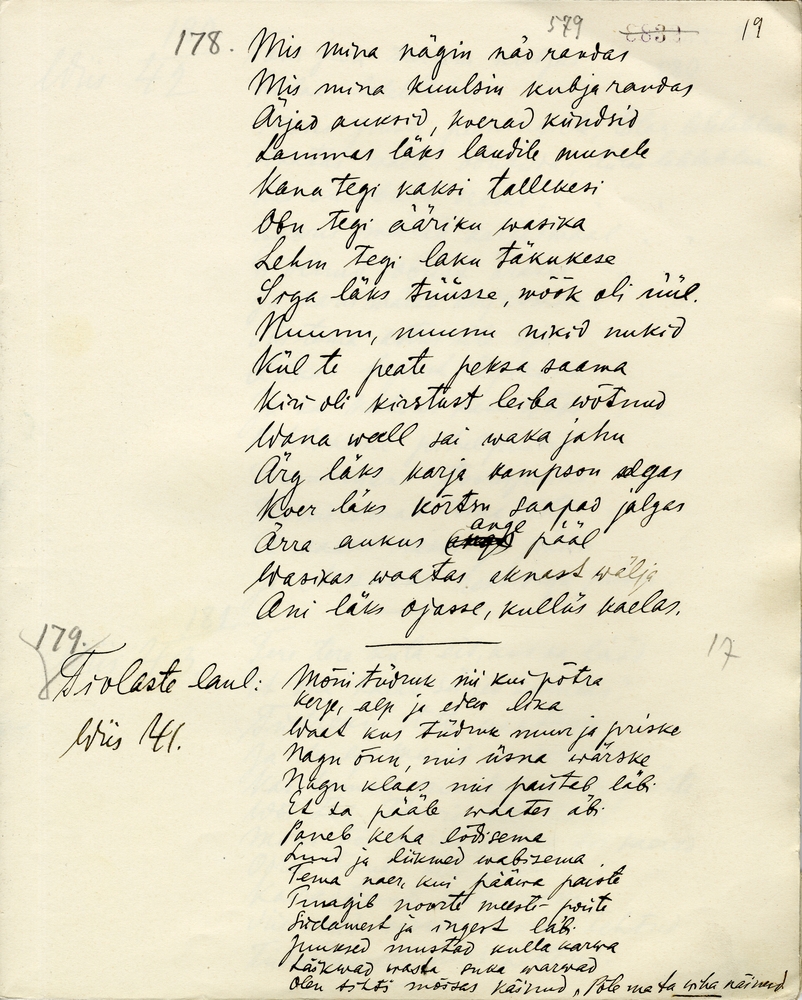 579 19
178. Mis mina nägin näo randas
Mis mina kuulsin kubja randas
Ärjad auksid, koerad kündsid
Lammas läks laudile munele
Kana tegi kaksi tallekesi
Obu tegi ääriku wasika
Lehm tegi laku täkukese
Siga läks tüüsse, wöök oli üül.
Nuumu, nuumu nikid nukid
Kül te peate peksa saama
Kiri oli kirstust leiba wõtnud
Wana wall sai waka jahu
Ärg läks karja kampson selgas
Koer läks kõrtsu saapad jalgas
Ärra aukus ange pääl
Wasikas waatas aknast wälja
Ani läks ojasse, kulliis kaelas.
179. 17
Tiolaste laul:
Wiis 41.
Mõni tüdruk nii kui põtra
Kerje, alp ja edew lika
Waat kus tüdruk nuur ja priske
Nagu õun, mis üsna wärske
Nagu klaas mis paistab läbi
Et ta pääle waates äbi
Paneb keha lõdisema
Luud ja liikmed wabisema.
Tema naer, kui pääwa paiste
Tungib noorte meeste poiste
Südamest ja ingest läbi
Juuksed mustad kulla karwa
Läikwad wasta suka warwad
Olen sihti mõisas käinud, Pole ma ta wiha näinud